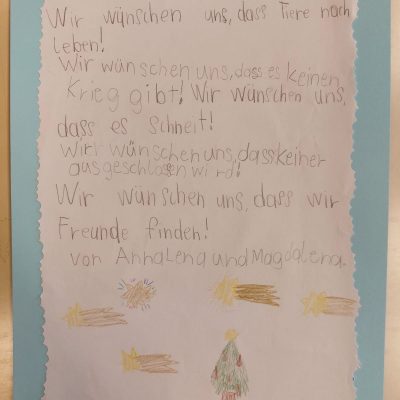 Wir wünschen uns, dass Tiere noch
leben!
Wir wünschen uns, dass es keinen
Krieg gibt! Wir wünschen uns,
dass es schneit!
Wir wünschen uns, dass keiner
ausgeschlosen wird!
Wir wünschen uns, dass wir
Freunde finden!
von Annalena und Magdalena